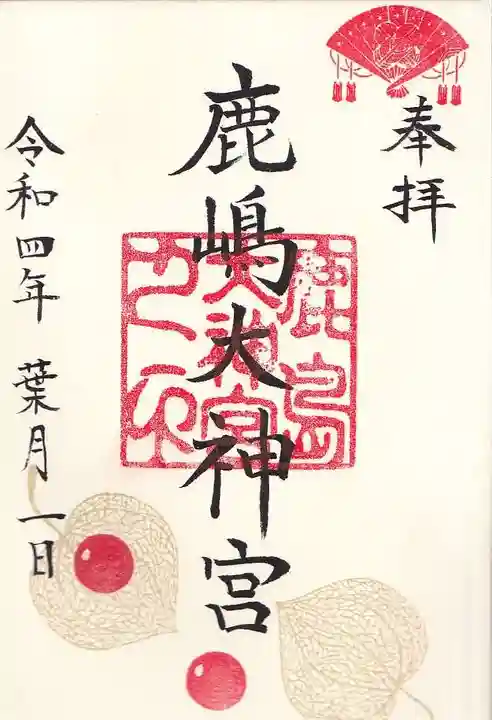 奉拝
鹿嶋大神宮
鹿島
大神宮
之印
令和四年 葉月一日